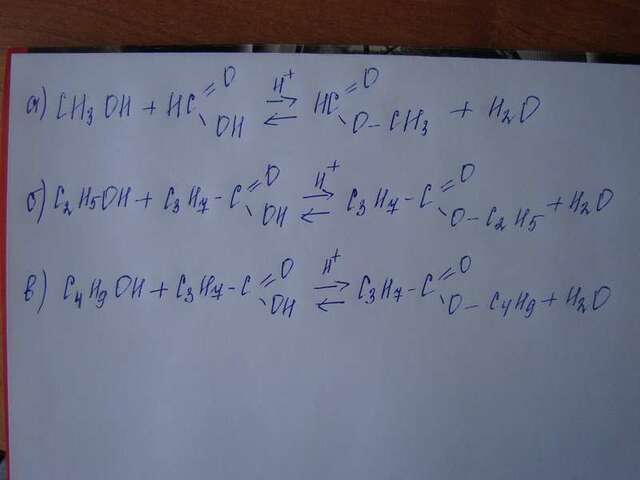 а) CH3OH + HC=O OH ⇄ H+ HC=O O-CH3 + H2O
б) C2H5OH + C3H7-C=O OH ⇄ H+ C3H7-C=O O-C2H5 + H2O
в) C4H9OH + C3H7-C=O OH ⇄ H+ C3H7-C=O O-C4H9 + H2O